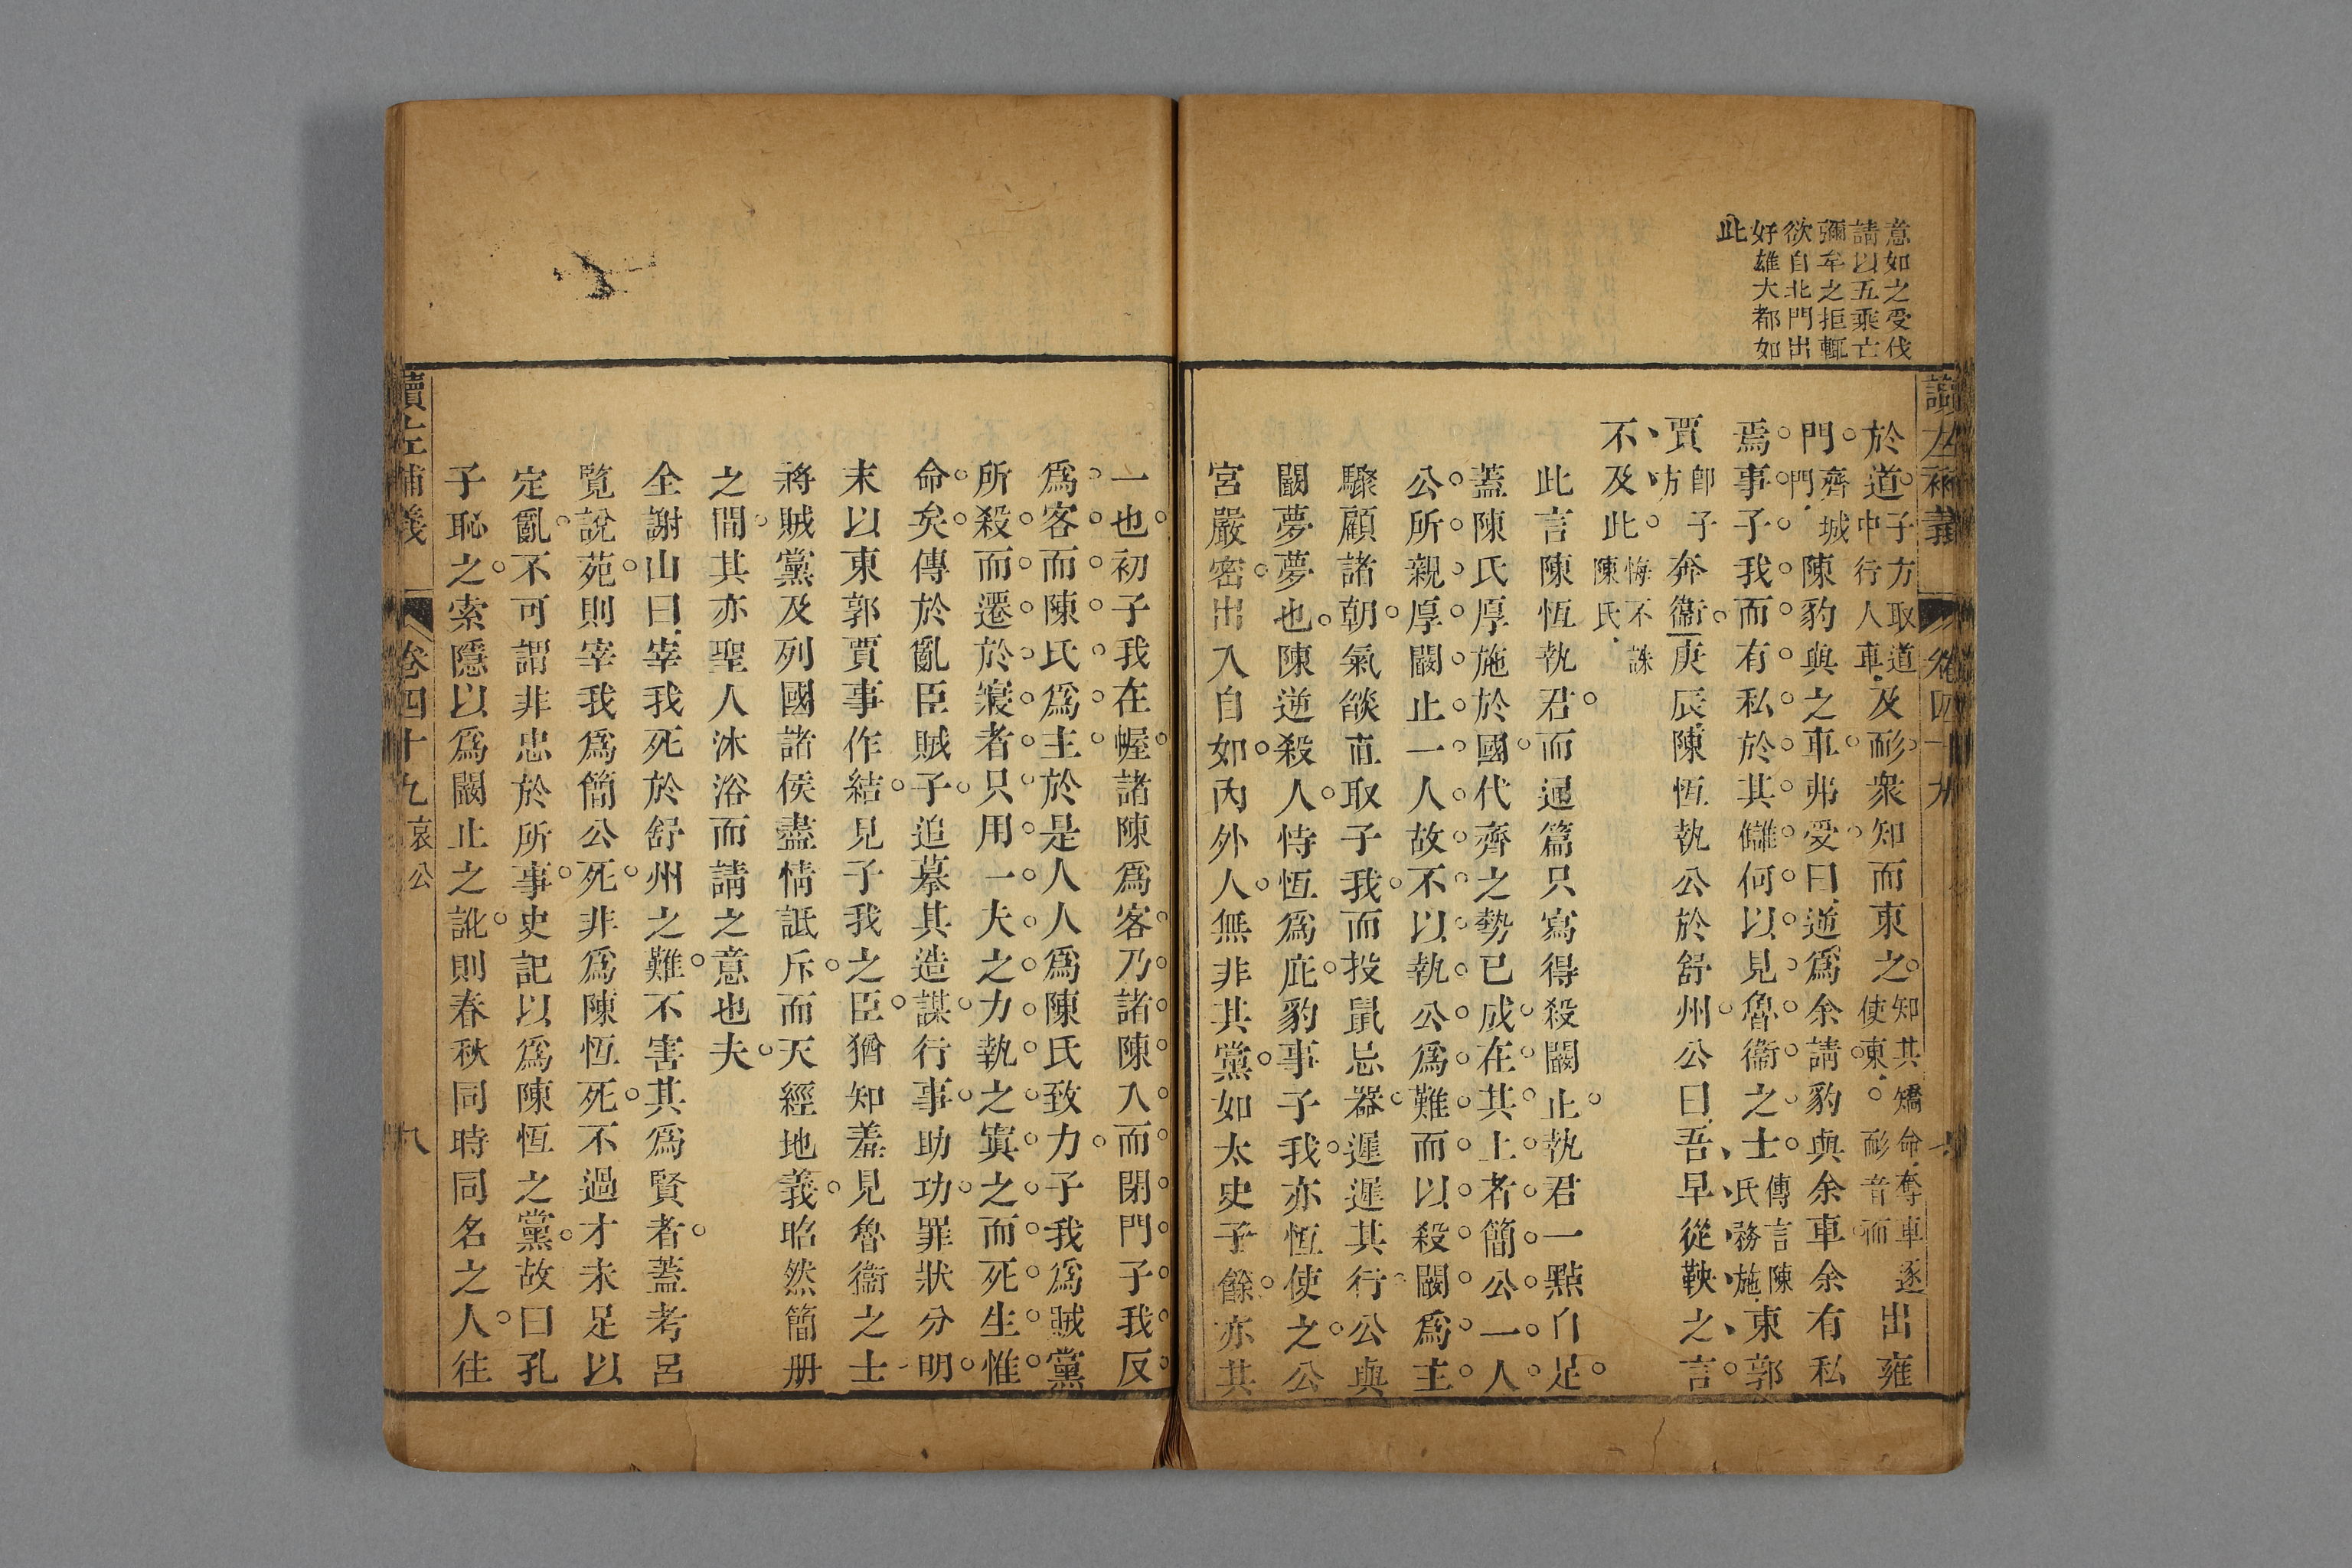 意如之受伐
請以五乘亡
彌牟之拒輒
欲自北門出
好雄大都如
此
讀左補義 卷四十九
於道子方取道中行人車及耏衆知而東之知其矯命奪車逐使東。耏音而出雍
門齊城門陳豹與之車弗受曰逆爲余請豹與余車余有私
焉事子我而有私於其讎何以見魯衞之士傳言陳氏務施東郭
賈卽子方奔衞庚辰陳恆執公於舒州公曰吾早從鞅之言
不及此悔不誅陳氏
此言陳恆執君而通篇只寫得殺闞止執君一點自足
蓋陳氏厚施於國代齊之勢已成在其上者簡公一人
公所親厚闞止一人故不以執公爲難而以殺闞爲主
驟顧諸朝氣燄直取子我而投鼠忌器遲遲其行公與
闞夢夢也陳逆殺人恃恆爲庇豹事子我亦恆使之公
宮嚴密出入自如內外人無非其黨如太史子餘亦其
一也初子我在幄諸陳爲客乃諸陳入而閉門子我反
爲客而陳氏爲主於是人人爲陳氏致力子我爲賊黨
所殺而遷於寢者只用一夫之力執之寘之而死生惟
命矣傳於亂臣賊子追摹其造謀行事助功罪狀分明
末以東郭賈事作結見子我之臣猶知羞見魯衞之士
將賊黨及列國諸侯盡情詆斥而天經地義昭然簡册
之間其亦聖人沐浴而請之意也夫
全謝山曰宰我死於舒州之難不害其爲賢者蓋考呂
覽說苑則宰我爲簡公死非爲陳恆死死不過才未足以
定亂不可謂非忠於所事史記以爲陳恆之黨故曰孔
子恥之索隱以爲闞止之訛則春秋同時同名之人往
讀左補義 卷四十九 哀公 八